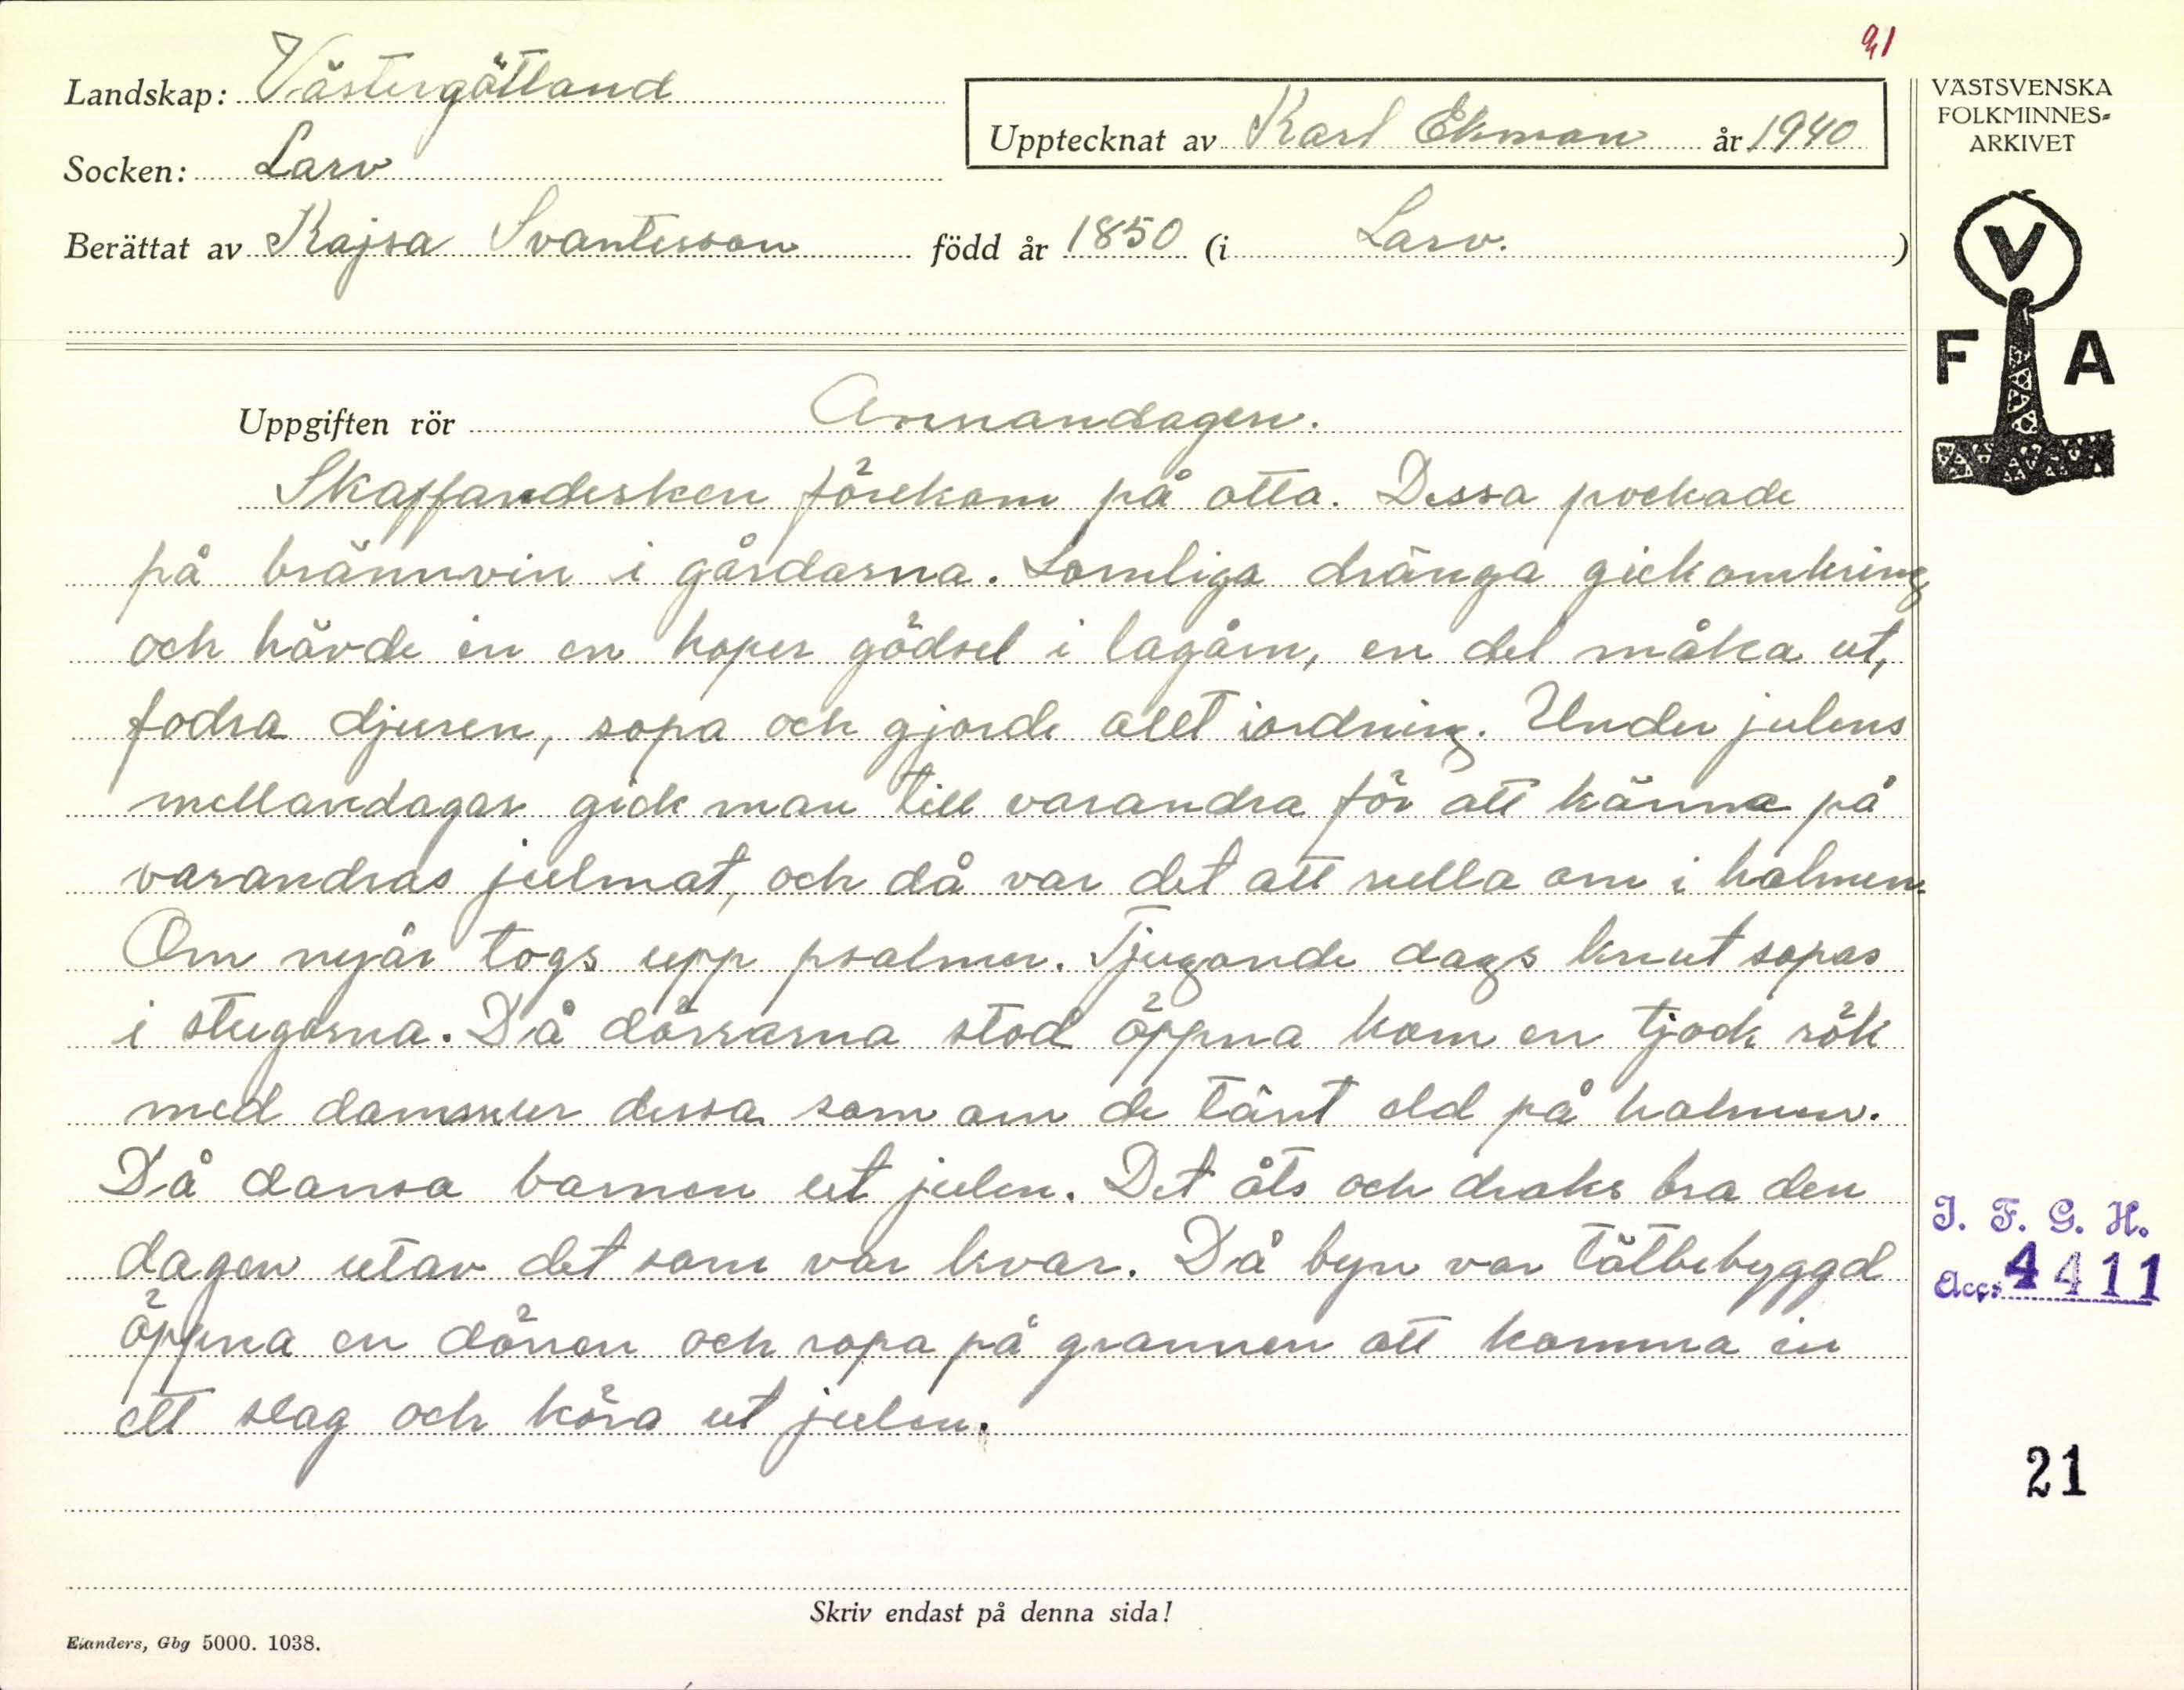 21
Landskap: Västergötland
Socken: Larv
Upptecknat av Karl Ekman år 1940
Berättat av Kajsa Svantesson född år 1850 (i Larv. )
VÄSTSVENSKA
FOLKMINNES-
ARKIVET
V
F A
Uppgiften rör Annandagen.
Skaffandesken förekom på otta. Dessa pockade
på brännvin i gårdarna. Somliga dränga gick omkring
och hävde in en hoper gödsel i lagårn, en del måka ut,
fodra djuren, sopa och gjorde allt iordning. Under julens
mellandagar gick man till varandra för att känna på
varandras julmat, och då var det att rulla om i halmen.
Om nyår togs upp psalmer. Tjugonde dags knut sopas
i stugorna. Då dörrarna stod öppna kom en tjock rök
med dam ur dessa som om de tänt eld på halmen.
Då dansa barnen ut julen. Det åts och draks bra den
dagen utav det som var kvar. Då byn var tätbebyggd
öppna en dörren och ropa på grannen att komma in
ett slag och köra ut julen.
I. F. G. H.
Acc: 4411
21
Skriv endast på denna sida!
Elanders, Gbg 5000. 1038.